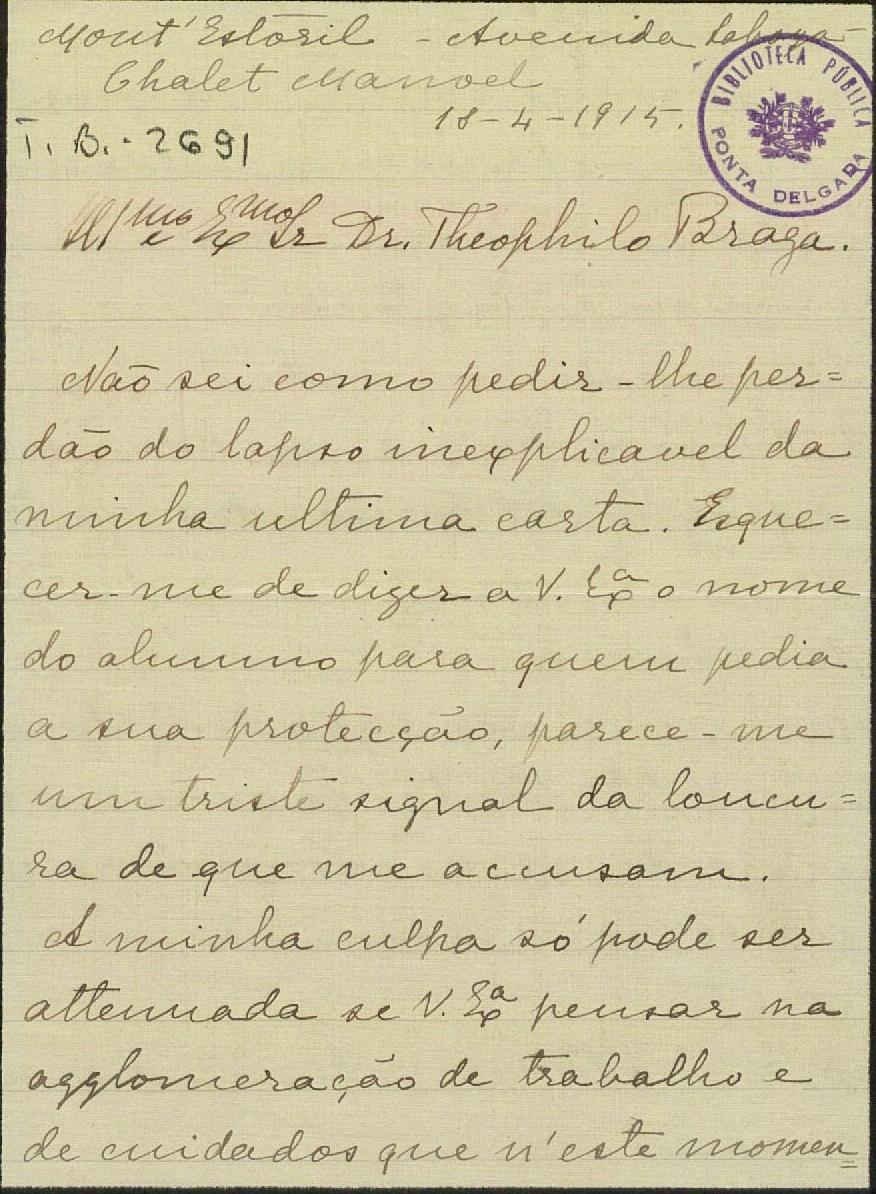 Mont'Estoril - Avenida Saboya
Chalet Manoel
18-4-1915.
T. B. - 2691
BIBLIOTECA PÚBLICA
PONTA DELGADA
Ill.mo e Ex.mo Sr Dr. Theophilo Braga.
Não sei como pedir-lhe per=
dão do lapso inexplicavel da
minha ultima carta. Esque=
cer-me de dizer a V. Exª o nome
do alumno para quem pedia
a sua protecção, parece-me
um triste signal da loucu=
ra de que me accusam.
A minha culpa só pode ser
attenuada se V. Exª pensar na
agglomeração de trabalho e
de cuidados que n'este momen=